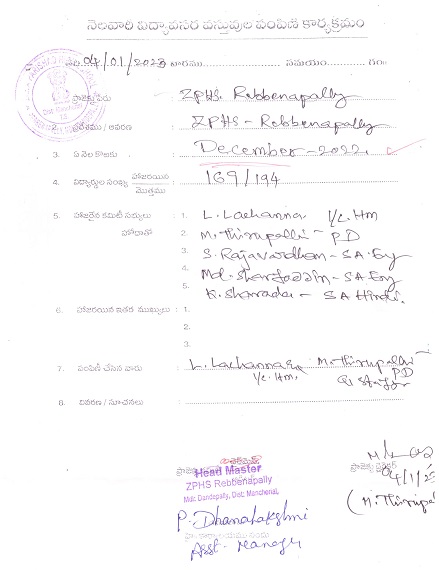 నెలవారి విద్యావసర వస్తువుల పంపిణి కార్యక్రమం
తేది. 04/01/2023 వారము.................. సమయం.................. గం॥
ప్రాజెక్టు పేరు : ZPHS. Rebbenapally
2. ప్రదేశము / ఆవరణ : ZPHS - Rebbenapally
3. ఏ నెల కొఱకు : December - 2022.
4. విద్యార్థుల సంఖ్య హాజరయిన / మొత్తము : 169/194
5. హాజరైన కమిటీ సభ్యులు : 1. L. Lachanna I/c. Hm
హోదాతో 2. M. Thirupathi - PD
3. S. Rajavardhan - S.A. Eng
4. Md. - S.A Eng
5. K. Sharada - S A Hindi.
6. హాజరయిన ఇతర ముఖ్యులు : 1.
2.
3.
7. పంపిణి చేసిన వారు : L. Lachanna I/c. Hm, M. Thirupathi PD & Staff
8. వివరణ / సూచనలు :
Head Master
ZPHS Rebbenapally
Mdl: Dandepally, Dist: Mancherial,
P. Dhanalakshmi
Asst. Manager
ప్రాజెక్టు డైరెక్టర్
04/1/23
(M. Thirupa